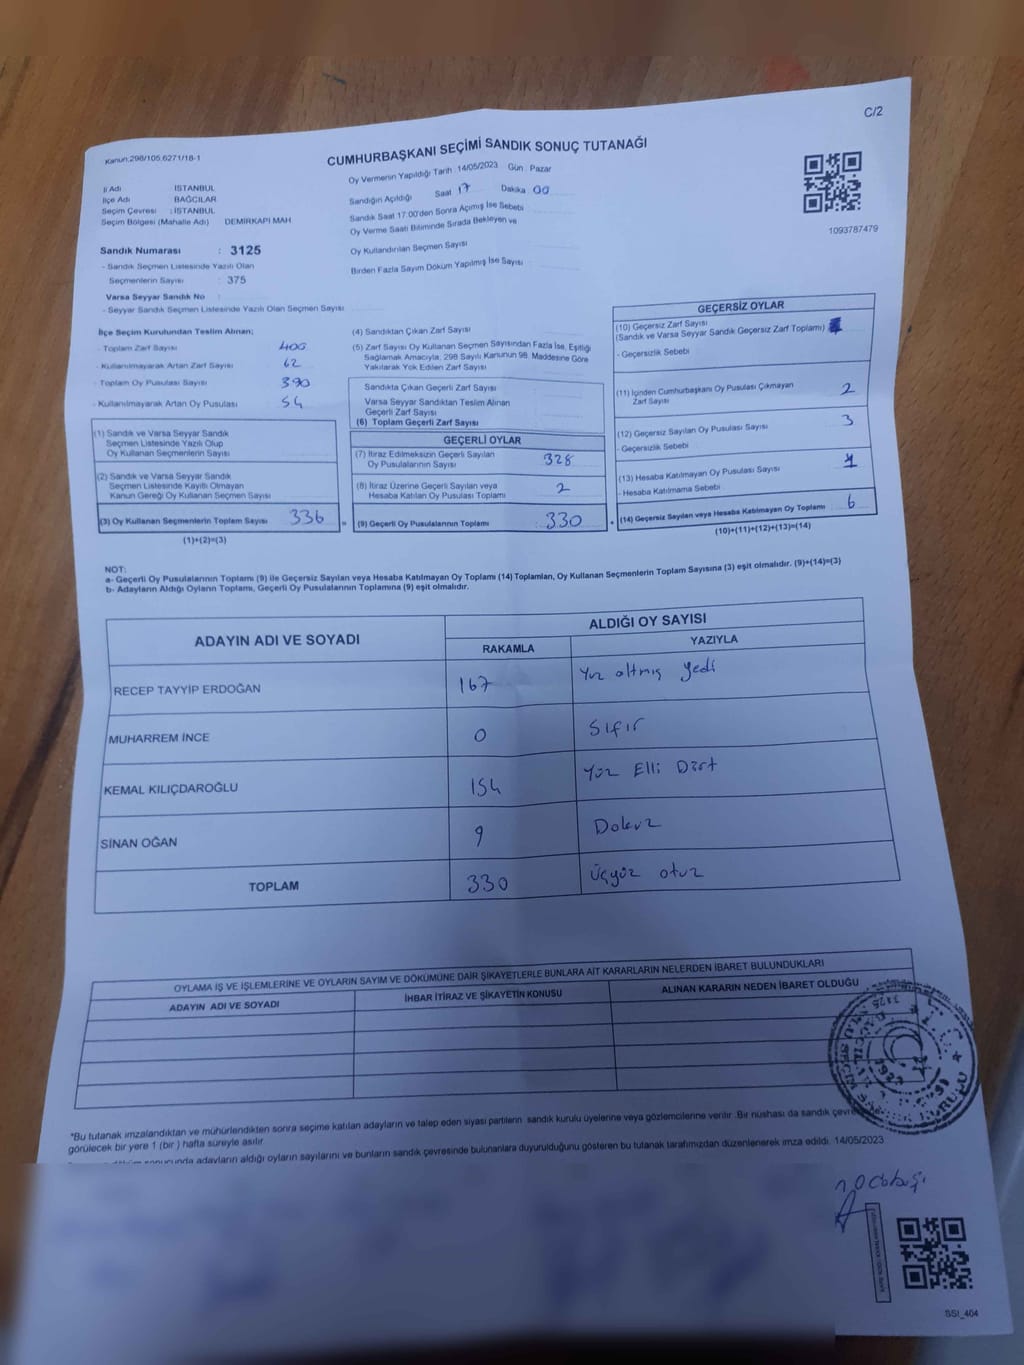 C/2
Kanun:298/105.6271/18-1
CUMHURBAŞKANI SEÇİMİ SANDIK SONUÇ TUTANAĞI
İl Adı İSTANBUL
İlçe Adı BAĞCILAR
Seçim Çevresi : İSTANBUL
Seçim Bölgesi (Mahalle Adı) DEMİRKAPI MAH
Oy Vermenin Yapıldığı Tarih 14/05/2023 Gün Pazar
Sandığın Açıldığı Saat 17 Dakika 00
Sandık Saat 17:00'den Sonra Açılmış İse Sebebi
Oy Verme Saati Bitiminde Sırada Bekleyen ve
Oy Kullandırılan Seçmen Sayısı
Birden Fazla Sayım Döküm Yapılmış İse Sayısı
1093787479
Sandık Numarası : 3125
- Sandık Seçmen Listesinde Yazılı Olan
Seçmenlerin Sayısı : 375
Varsa Seyyar Sandık No :
- Seyyar Sandık Seçmen Listesinde Yazılı Olan Seçmen Sayısı
İlçe Seçim Kurulundan Teslim Alınan;
- Toplam Zarf Sayısı 400
- Kullanılmayarak Artan Zarf Sayısı 62
- Toplam Oy Pusulası Sayısı 390
- Kullanılmayarak Artan Oy Pusulası 54
(1) Sandık ve Varsa Seyyar Sandık
Seçmen Listesinde Yazılı Olup
Oy Kullanan Seçmenlerin Sayısı
(2) Sandık ve Varsa Seyyar Sandık
Seçmen Listesinde Kayıtlı Olmayan
Kanun Gereği Oy Kullanan Seçmen Sayısı
(3) Oy Kullanan Seçmenlerin Toplam Sayısı 336
(1)+(2)=(3)
(4) Sandıktan Çıkan Zarf Sayısı
(5) Zarf Sayısı Oy Kullanan Seçmen Sayısından Fazla İse, Eşitliği
Sağlamak Amacıyla; 298 Sayılı Kanunun 98. Maddesine Göre
Yakılarak Yok Edilen Zarf Sayısı
Sandıkta Çıkan Geçerli Zarf Sayısı
Varsa Seyyar Sandıktan Teslim Alınan
Geçerli Zarf Sayısı
(6) Toplam Geçerli Zarf Sayısı
GEÇERLİ OYLAR
(7) İtiraz Edilmeksizin Geçerli Sayılan
Oy Pusulalarının Sayısı 328
(8) İtiraz Üzerine Geçerli Sayılan veya
Hesaba Katılan Oy Pusulası Toplamı 2
= (9) Geçerli Oy Pusulalarının Toplamı : 330
GEÇERSİZ OYLAR
(10) Geçersiz Zarf Sayısı
(Sandık ve Varsa Seyyar Sandık Geçersiz Zarf Toplamı)
- Geçersizlik Sebebi
(11) İçinden Cumhurbaşkanı Oy Pusulası Çıkmayan
Zarf Sayısı 2
(12) Geçersiz Sayılan Oy Pusulası Sayısı 3
- Geçersizlik Sebebi
(13) Hesaba Katılmayan Oy Pusulası Sayısı 1
- Hesaba Katılmama Sebebi
+ (14) Geçersiz Sayılan veya Hesaba Katılmayan Oy Toplamı 6
(10)+(11)+(12)+(13)=(14)
NOT:
a- Geçerli Oy Pusulalarının Toplamı (9) ile Geçersiz Sayılan veya Hesaba Katılmayan Oy Toplamı (14) Toplamları, Oy Kullanan Seçmenlerin Toplam Sayısına (3) eşit olmalıdır. (9)+(14)=(3)
b- Adayların Aldığı Oyların Toplamı, Geçerli Oy Pusulalarının Toplamına (9) eşit olmalıdır.
ADAYIN ADI VE SOYADI ALDIĞI OY SAYISI
RAKAMLA YAZIYLA
RECEP TAYYİP ERDOĞAN 167 Yüz altmış yedi
MUHARREM İNCE 0 Sıfır
KEMAL KILIÇDAROĞLU 154 Yüz Elli Dört
SİNAN OĞAN 9 Dokuz
TOPLAM 330 Üçyüz otuz
OYLAMA İŞ VE İŞLEMLERİNE VE OYLARIN SAYIM VE DÖKÜMÜNE DAİR ŞİKAYETLERLE BUNLARA AİT KARARLARIN NELERDEN İBARET BULUNDUKLARI
ADAYIN ADI VE SOYADI İHBAR İTİRAZ VE ŞİKAYETİN KONUSU ALINAN KARARIN NEDEN İBARET OLDUĞU
*Bu tutanak imzalandıktan ve mühürlendikten sonra seçime katılan adayların ve talep eden siyasi partilerin sandık kurulu üyelerine veya gözlemcilerine verilir .Bir nüshası da sandık
görülecek bir yere 1 (bir ) hafta süreyle asılır.
sonucunda adayların aldığı oyların sayılarını ve bunların sandık çevresinde bulunanlara duyurulduğunu gösteren bu tutanak tarafımızdan düzenlenerek imza edildi. 14/05/2023
SSI_404